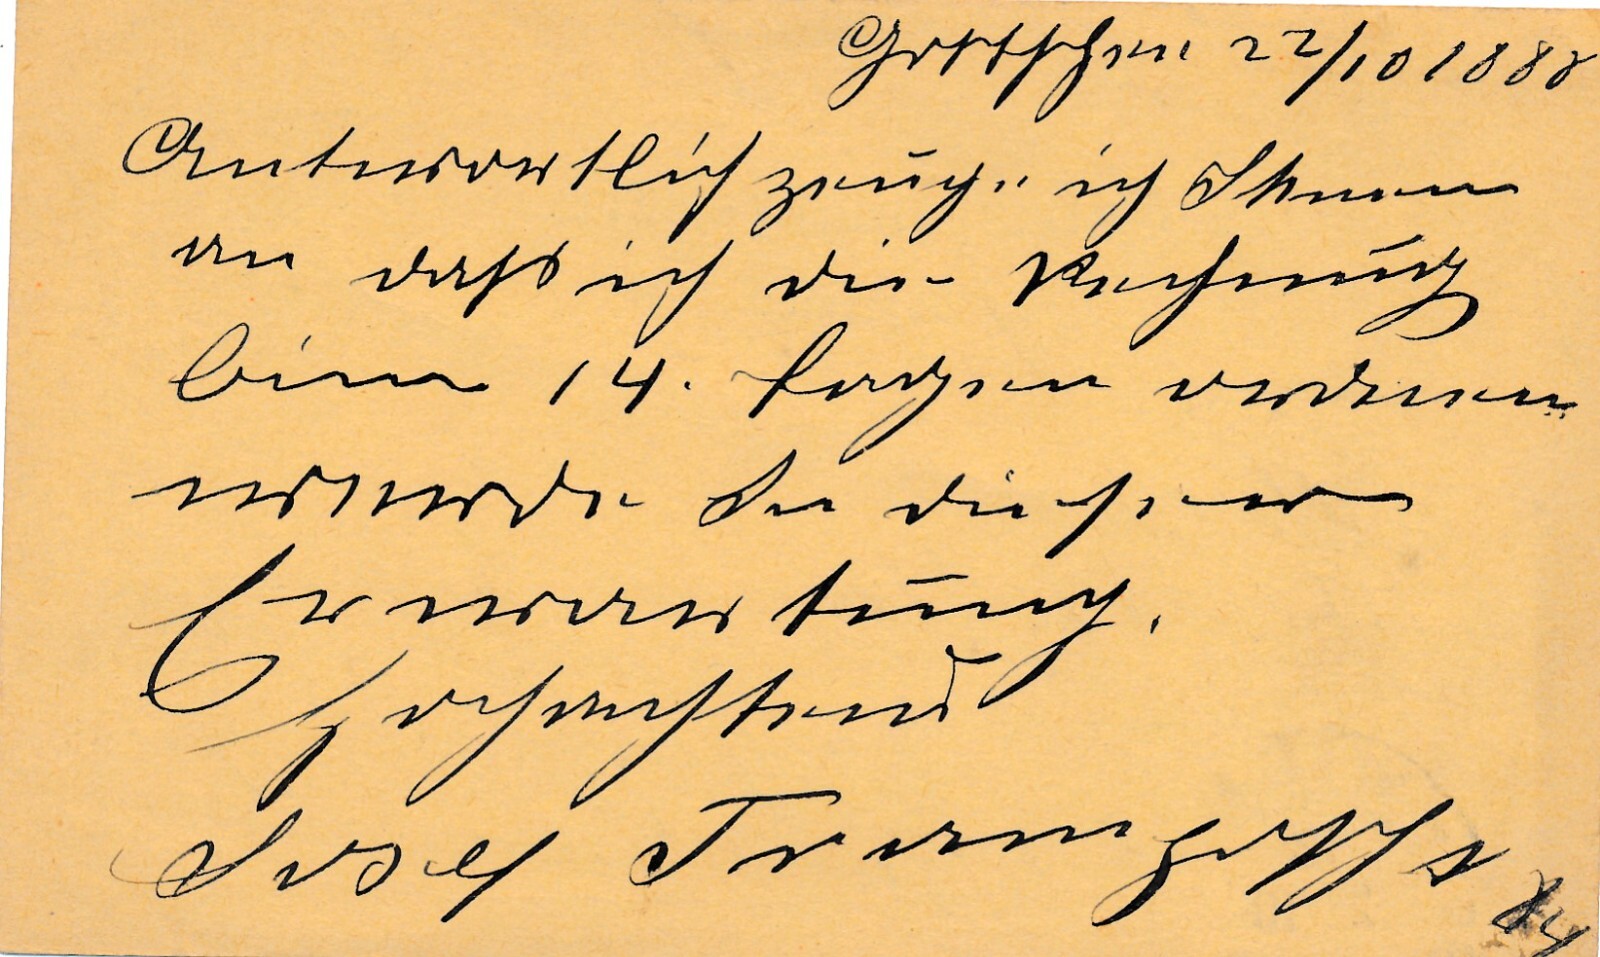 Gottschee 22/10 1888
Antwortlich zeuge ich Ihnen
an dass ich die Rechnung
binn 14. tagen ordenen
werde In dieser
Erwartung.
Hochachtend
Josef
84